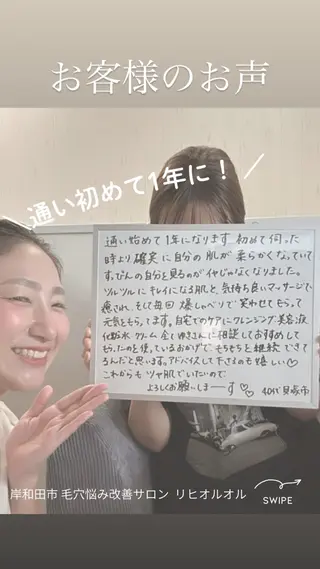 お客様のお声
通い初めて1年に！
通い始めて1年になります。初めて伺った
時より確実に自分の肌が柔らかくなっていて
すっぴんの自分を見るのがイヤじゃなくなりました。
ツルツルにキレイになる肌と、気持ち良いマッサージで
癒され、そして毎回爆しゃべりで笑わせてもらって
元気をもらってます。自宅でのケアにクレンジング・美容液
化粧水 クリーム 全てゆきさんに相談しておすすめして
もらったのを使っているおかげで もちもちを継続できて
るんだと思います。アドバイスして下さるのも嬉しい♡
これからもツヤ肌でいたいので
よろしくお願いしまーす♡♡ 40代貝塚市
岸和田市 毛穴悩み改善サロン リヒオルオル
SWIPE